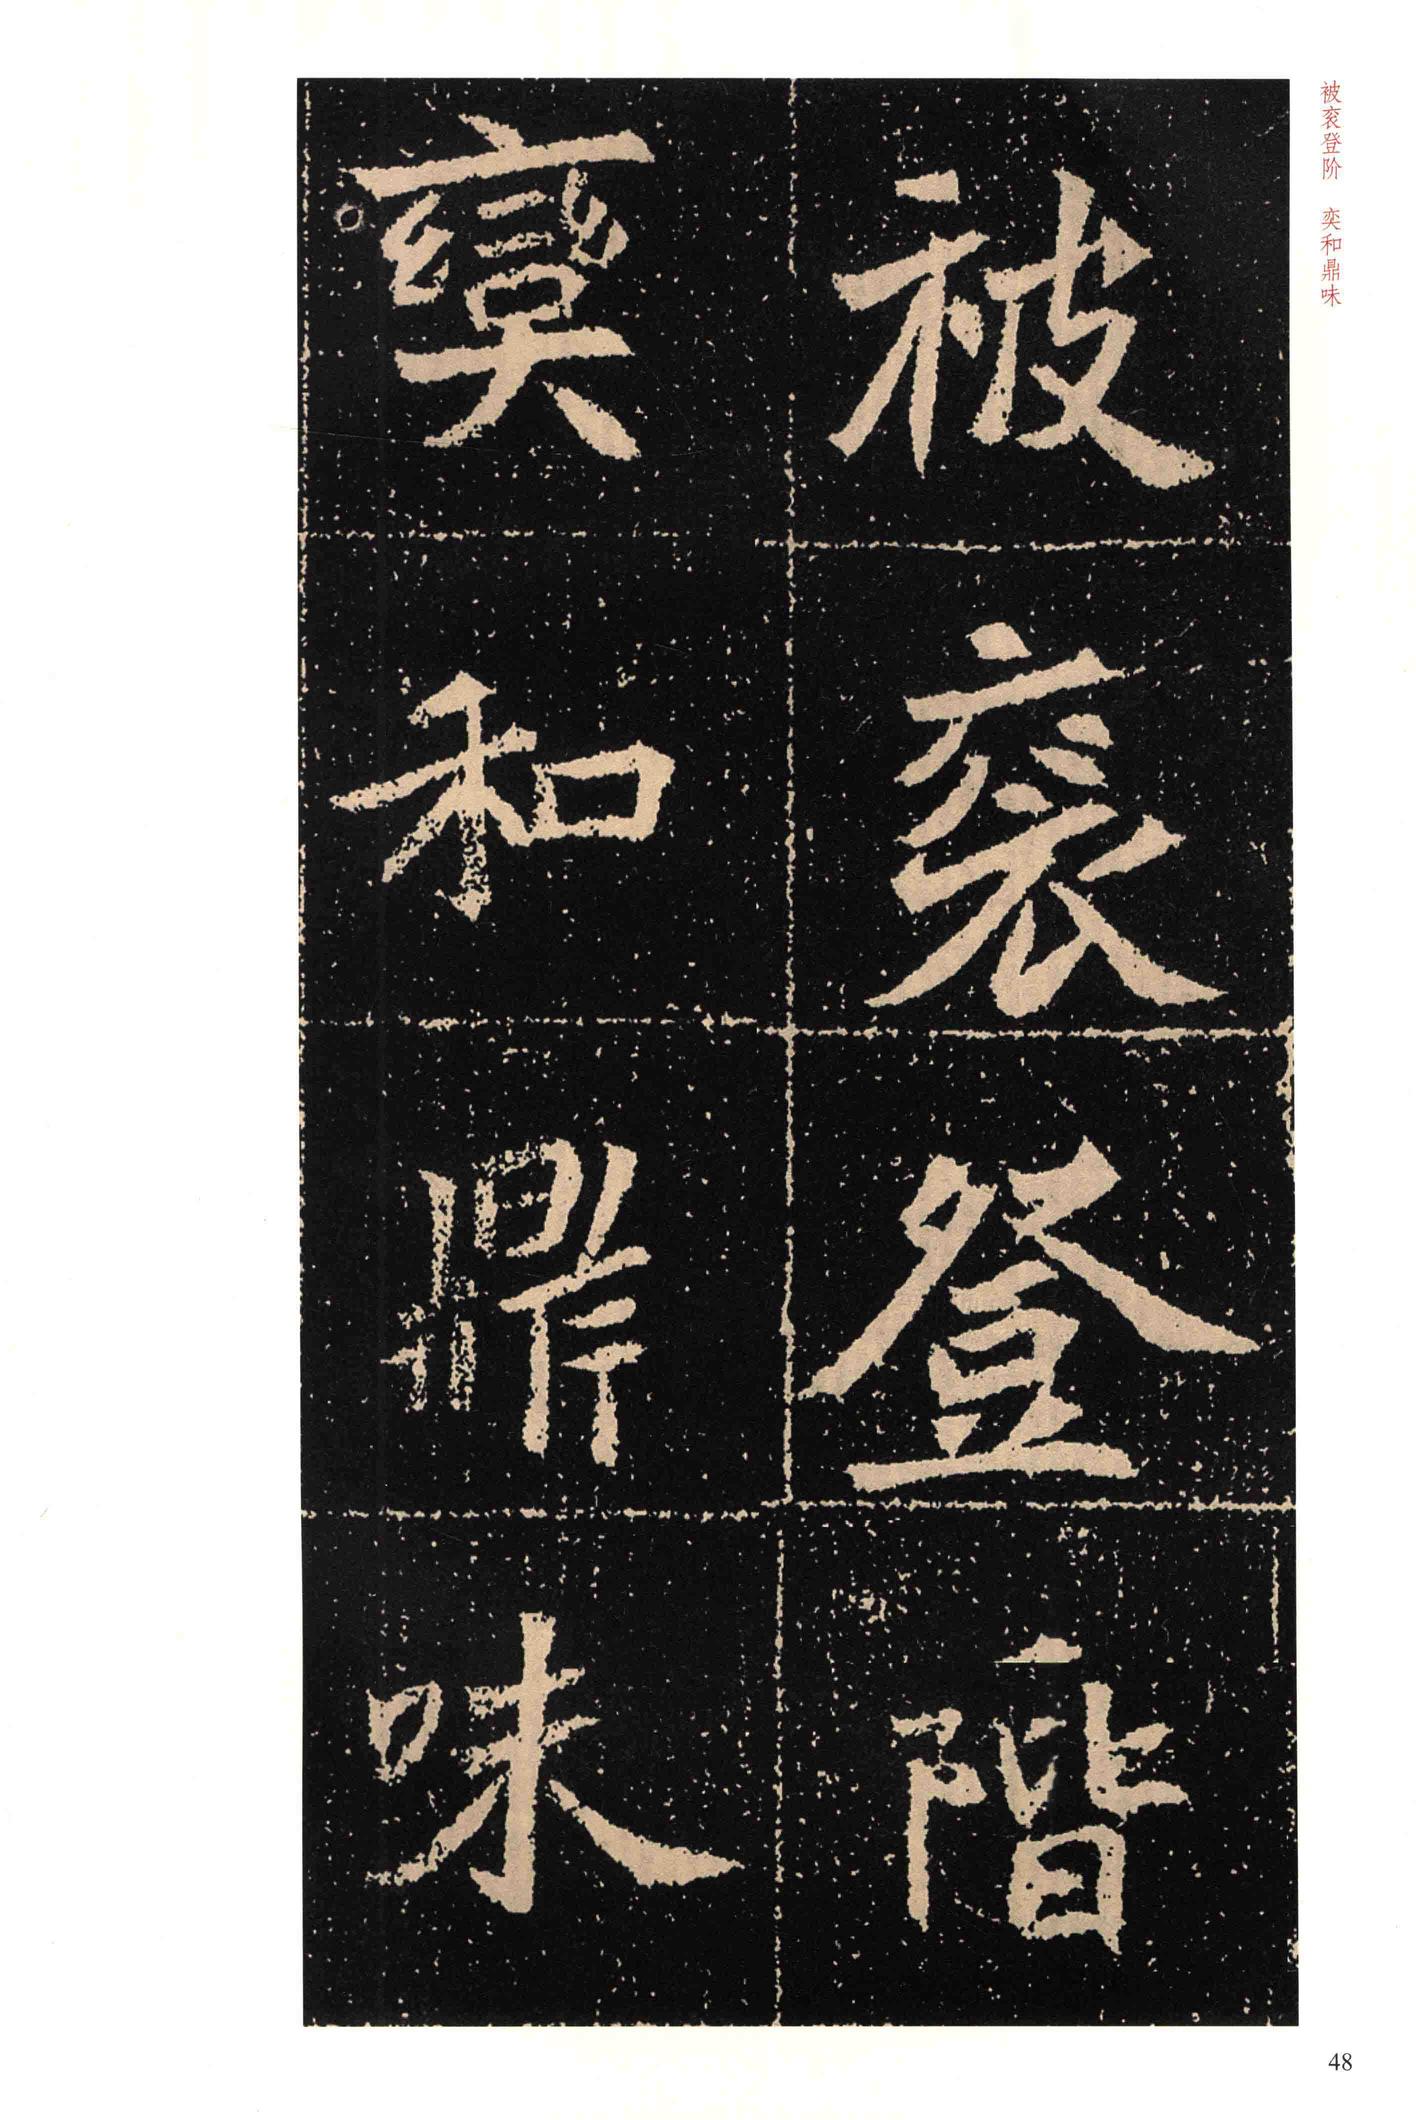 被衮登阶 奕和鼎味
被袞登階
和鼎味
48